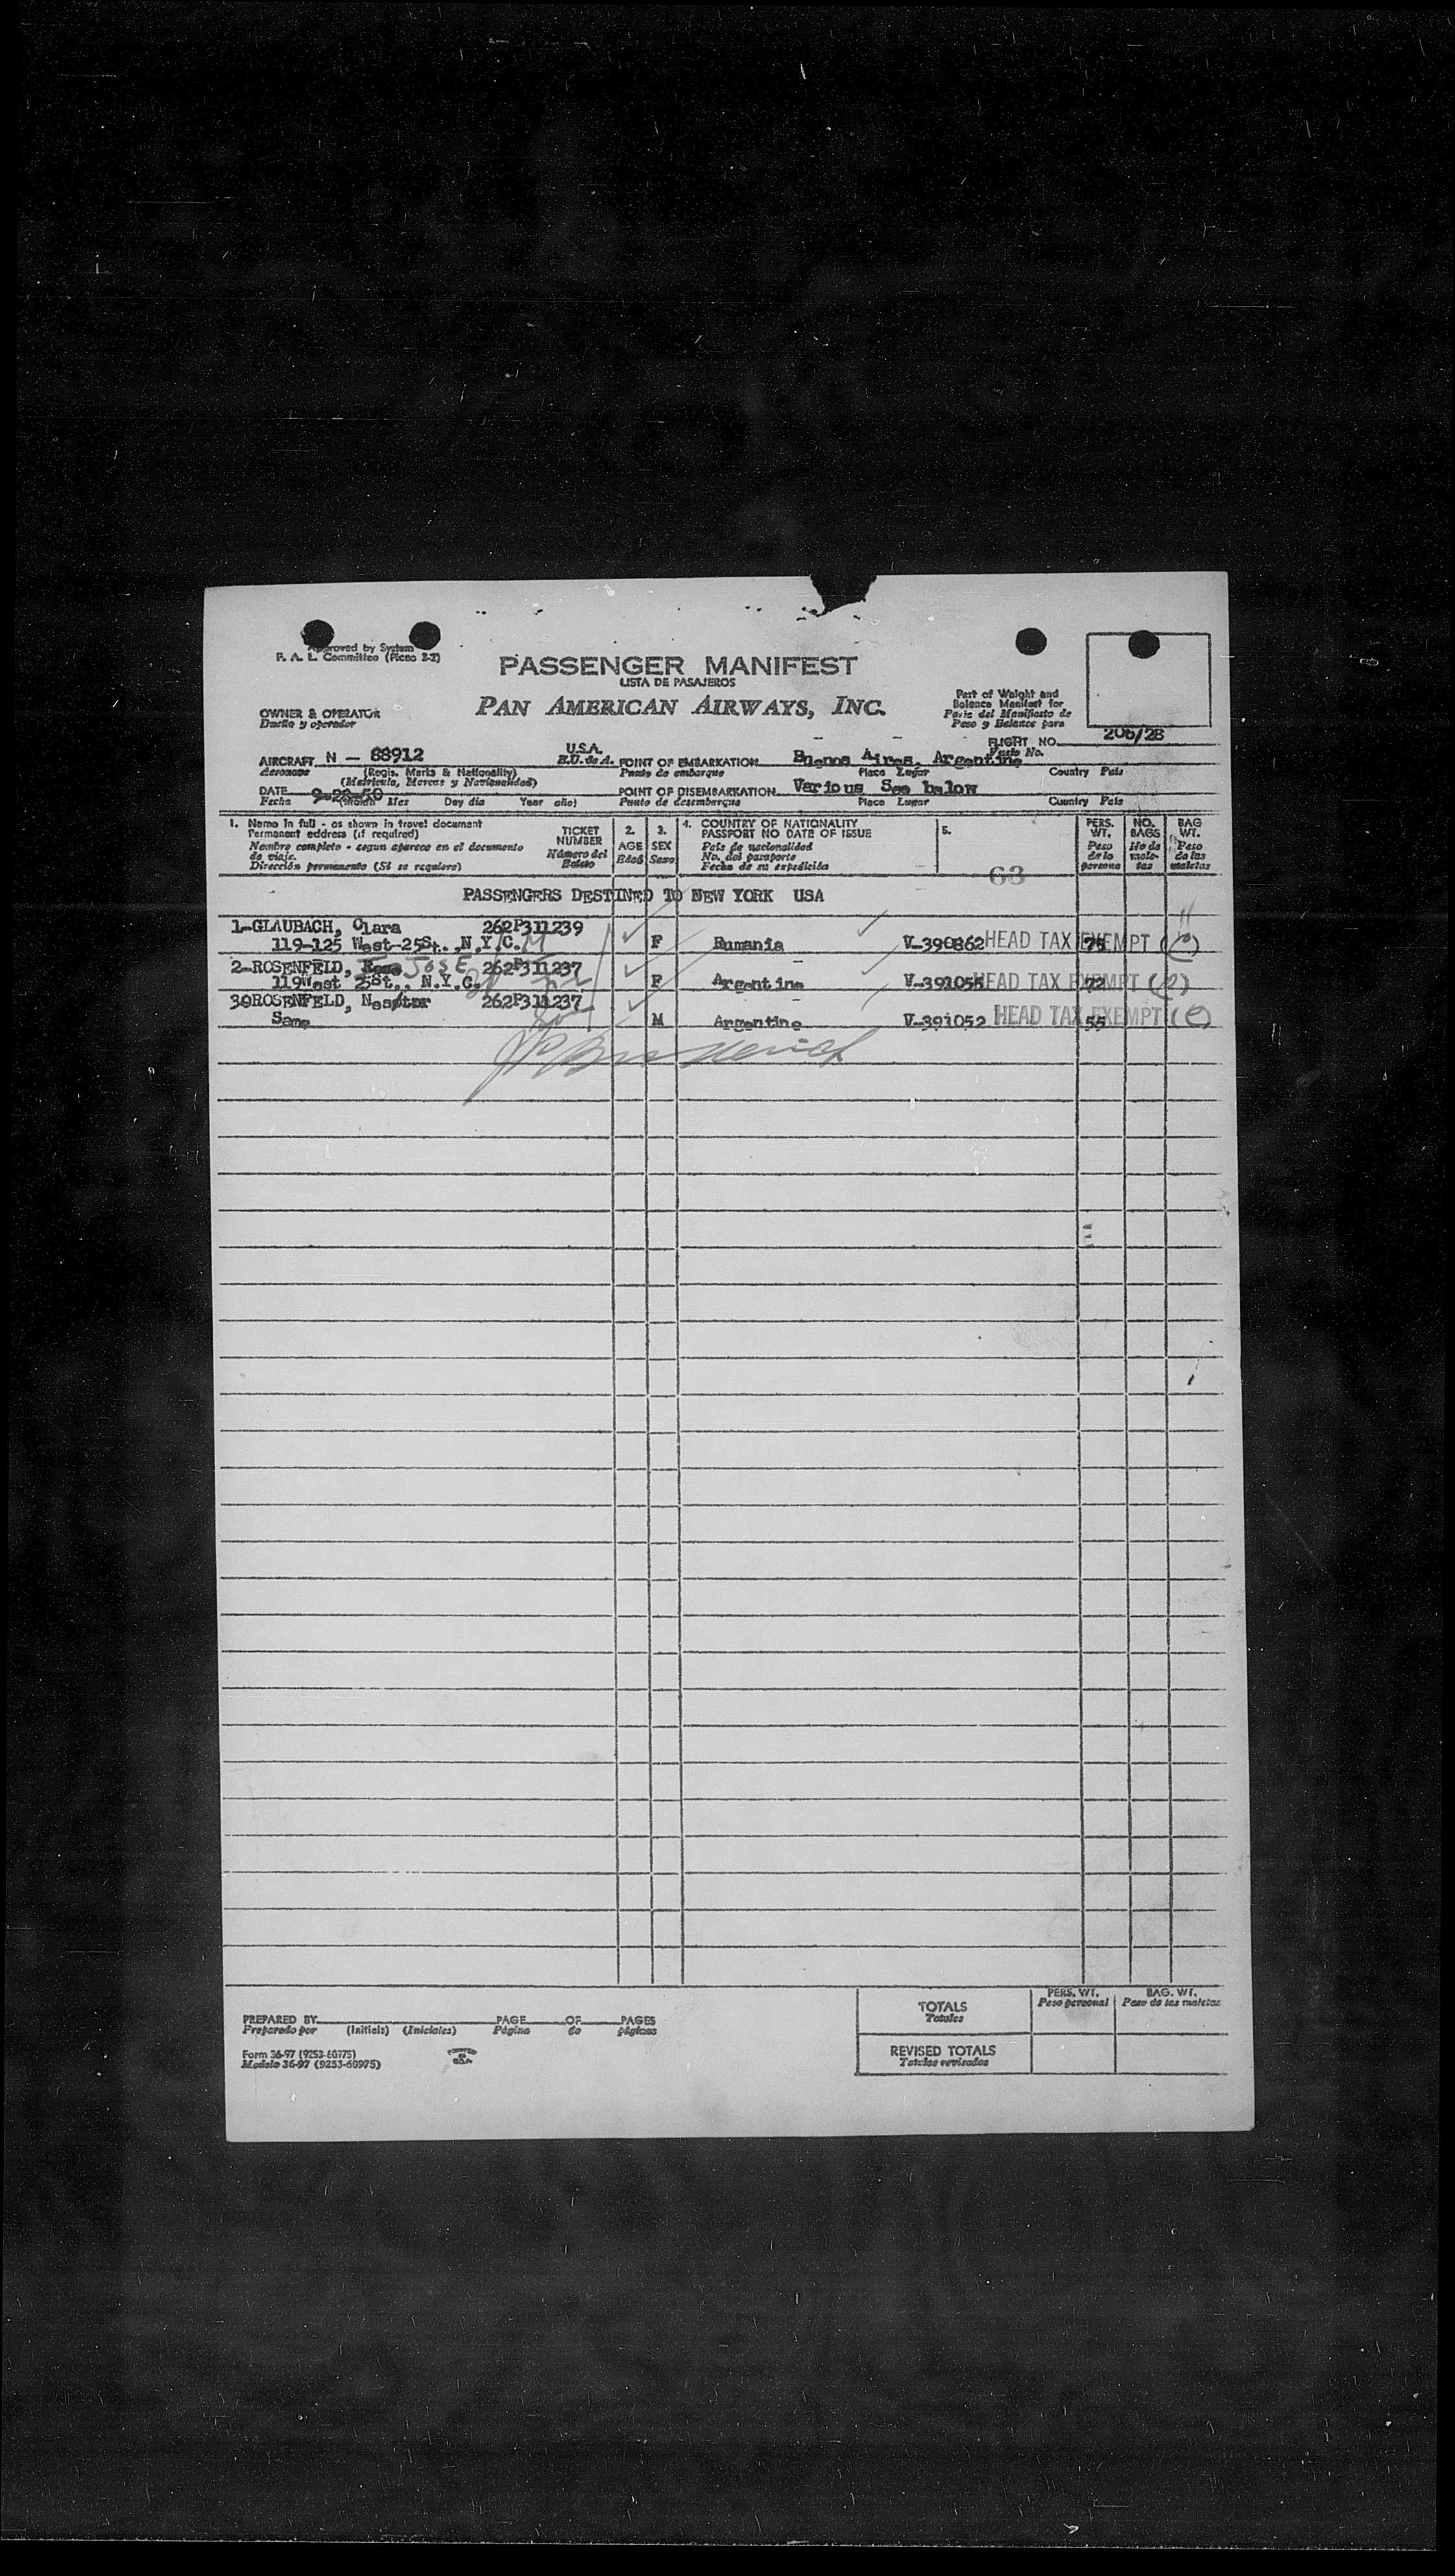 Approved by System
P. A. L. Committee (Picao 2-2)
PASSENGER MANIFEST
LISTA DE PASAJEROS
PAN AMERICAN AIRWAYS, INC.
OWNER & OPERATOR
Dueño y operador
Part of Weight and
Balance Manifest for
Parte del Manifiesto de
Peso y Balance para
FLIGHT NO. 206/28
Vuelo No.
AIRCRAFT N - 88912 U.S.A. POINT OF EMBARKATION Buenos Aires, Argentine
Aeronave (Regis. Marks & Nationality) E.U. de A. Punto de embarque Place Lugar Country País
(Matrícula, Marcas y Nacionalidad)
DATE 9-28-50 POINT OF DISEMBARKATION Various See below
Fecha (Month Mes Day día Year año) Punto de desembarque Place Lugar Country País
1. Name in full - as shown in travel document
Permanent address (if required)
Nombre completo - segun aparece en el documento
de viaje.
Dirección permanente (Si se requiere)
TICKET
NUMBER
Número del
Boleto
2.
AGE
Edad
3.
SEX
Sexo
4. COUNTRY OF NATIONALITY
PASSPORT NO DATE OF ISSUE
País de nacionalidad
No. del pasaporte
Fecha de su expedición
5.
63
PERS.
WT.
Peso
de la
persona
NO.
BAGS
No de
male-
tas
BAG
WT.
Peso
de las
maletas
PASSENGERS DESTINED TO NEW YORK USA
1-GLAUBACH, Clara 262P311239
119-125 West-25St., N.Y.C. F Rumania V-390862 HEAD TAX EXEMPT 75
2-ROSENFELD, JOSE 262P311237
119West 25St., N.Y.C. F Argentine HEAD TAX EXEMPT 72
30ROSENFELD, Nestor 262P311237
Same M Argentine V-391052 HEAD TAX EXEMPT 55
PREPARED BY PAGE OF PAGES
Preparado por (Initials) (Iniciales) Página de páginas
Form 36-97 (9253-60975)
Modelo 36-97 (9253-60975)
PRINTED
IN
U.S.A.
PERS. WT.
Peso personal
BAG. WT.
Peso de las maletas
TOTALS
Totales
REVISED TOTALS
Totales revisados